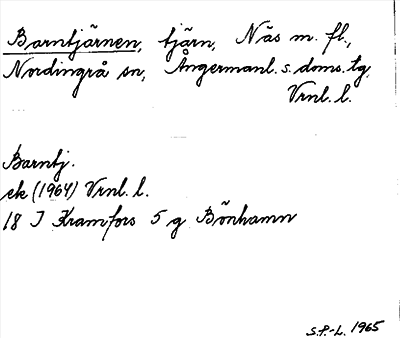 Barntjärnen, tjärn, Näs m. fl.,
Nordingrå sn, Ångermanl. s. doms. tg,
Vrnl. l.
Barntj.
ek (1964) Vrnl. l.
18 J Kramfors 5 g Bönhamn
S.P.-L. 1965